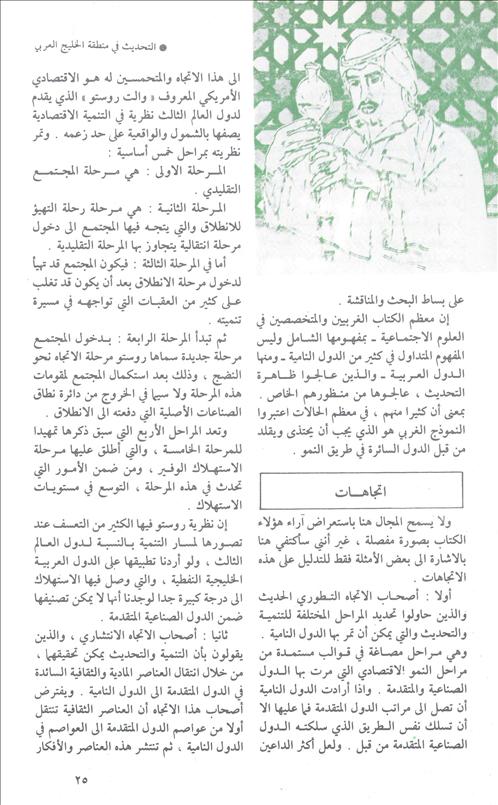 ● التحديث في منطقة الخليج العربي
على بساط البحث والمناقشة .
إن معظم الكتاب الغربيين والمتخصصين في
العلوم الاجتماعية ـ بمفهومها الشامل وليس
المفهوم المتداول في كثير من الدول النامية ـ ومنها
الدول العربية ـ والذين عالجوا ظاهرة
التحديث ، عالجوها من منظورهم الخاص .
بمعنى أن كثيرا منهم ، في معظم الحالات اعتبروا
النموذج الغربي هو الذي يجب أن يحتذى ويقلد
من قبل الدول السائرة في طريق النمو .
اتجاهات
ولا يسمح المجال هنا باستعراض آراء هؤلاء
الكتاب بصورة مفصلة ، غير أنني سأكتفي هنا
بالاشارة الى بعض الأمثلة فقط للتدليل على هذه
الاتجاهات .
أولا : أصحاب الاتجاه التطوري الحديث
والذين حاولوا تحديد المراحل المختلفة للتنمية
والتحديث والتي يمكن أن تمر بها الدول النامية .
وهي مراحل مصاغة في قوالب مستمدة من
مراحل النمو الاقتصادي التي مرت بها الدول
الصناعية والمتقدمة . واذا أرادت الدول النامية
أن تصل الى مراتب الدول المتقدمة فما عليها الا
أن تسلك نفس الطريق الذي سلكته الدول
الصناعية المتقدمة من قبل . ولعل أكثر الداعين
الى هذا الاتجاه والمتحمسين له هو الاقتصادي
الأمريكي المعروف « والت روستو » الذي يقدم
لدول العالم الثالث نظرية في التنمية الاقتصادية
يصفها بالشمول والواقعية على حد زعمه . وتمر
نظريته بمراحل خمس أساسية :
المرحلة الاولى : هي مرحلة المجتمع
التقليدي .
المرحلة الثانية : هي مرحلة رحلة التهيؤ
للانطلاق والتي يتجه فيها المجتمع الى دخول
مرحلة انتقالية يتجاوز بها المرحلة التقليدية .
أما في المرحلة الثالثة : فيكون المجتمع قد تهيأ
لدخول مرحلة الانطلاق بعد أن يكون قد تغلب
على كثير من العقبات التي تواجهه في مسيرة
تنميته .
ثم تبدأ المرحلة الرابعة : بدخول المجتمع
مرحلة جديدة سماها روستو مرحلة الاتجاه نحو
النضج ، وذلك بعد استكمال المجتمع لمقومات
هذه المرحلة ولا سيما في الخروج من دائرة نطاق
الصناعات الأصلية التي دفعته الى الانطلاق .
وتعد المراحل الأربع التي سبق ذكرها تمهيدا
للمرحلة الخامسة ، والتي أطلق عليها مرحلة
الاستهلاك الوفير ، ومن ضمن الأمور التي
تحدث في هذه المرحلة ، التوسع في مستويات
الاستهلاك .
إن نظرية روستو فيها الكثير من التعسف عند
تصورها لمسار التنمية بالنسبة لدول العالم
الثالث ، ولو أردنا تطبيقها على الدول العربية
الخليجية النفطية ، والتي وصل فيها الاستهلاك
الى درجة كبيرة جدا لوجدنا أنها لا يمكن تصنيفها
ضمن الدول الصناعية المتقدمة .
ثانيا : أصحاب الاتجاه الانتشاري ، والذين
يقولون بأن التنمية والتحديث يمكن تحقيقهما ،
من خلال انتقال العناصر المادية والثقافية السائدة
في الدول المتقدمة الى الدول النامية . ويفترض
أصحاب هذا الاتجاه أن العناصر الثقافية تنتقل
أولا من عواصم الدول المتقدمة الى العواصم في
الدول النامية ، ثم تنتشر هذه العناصر والأفكار
٢٥